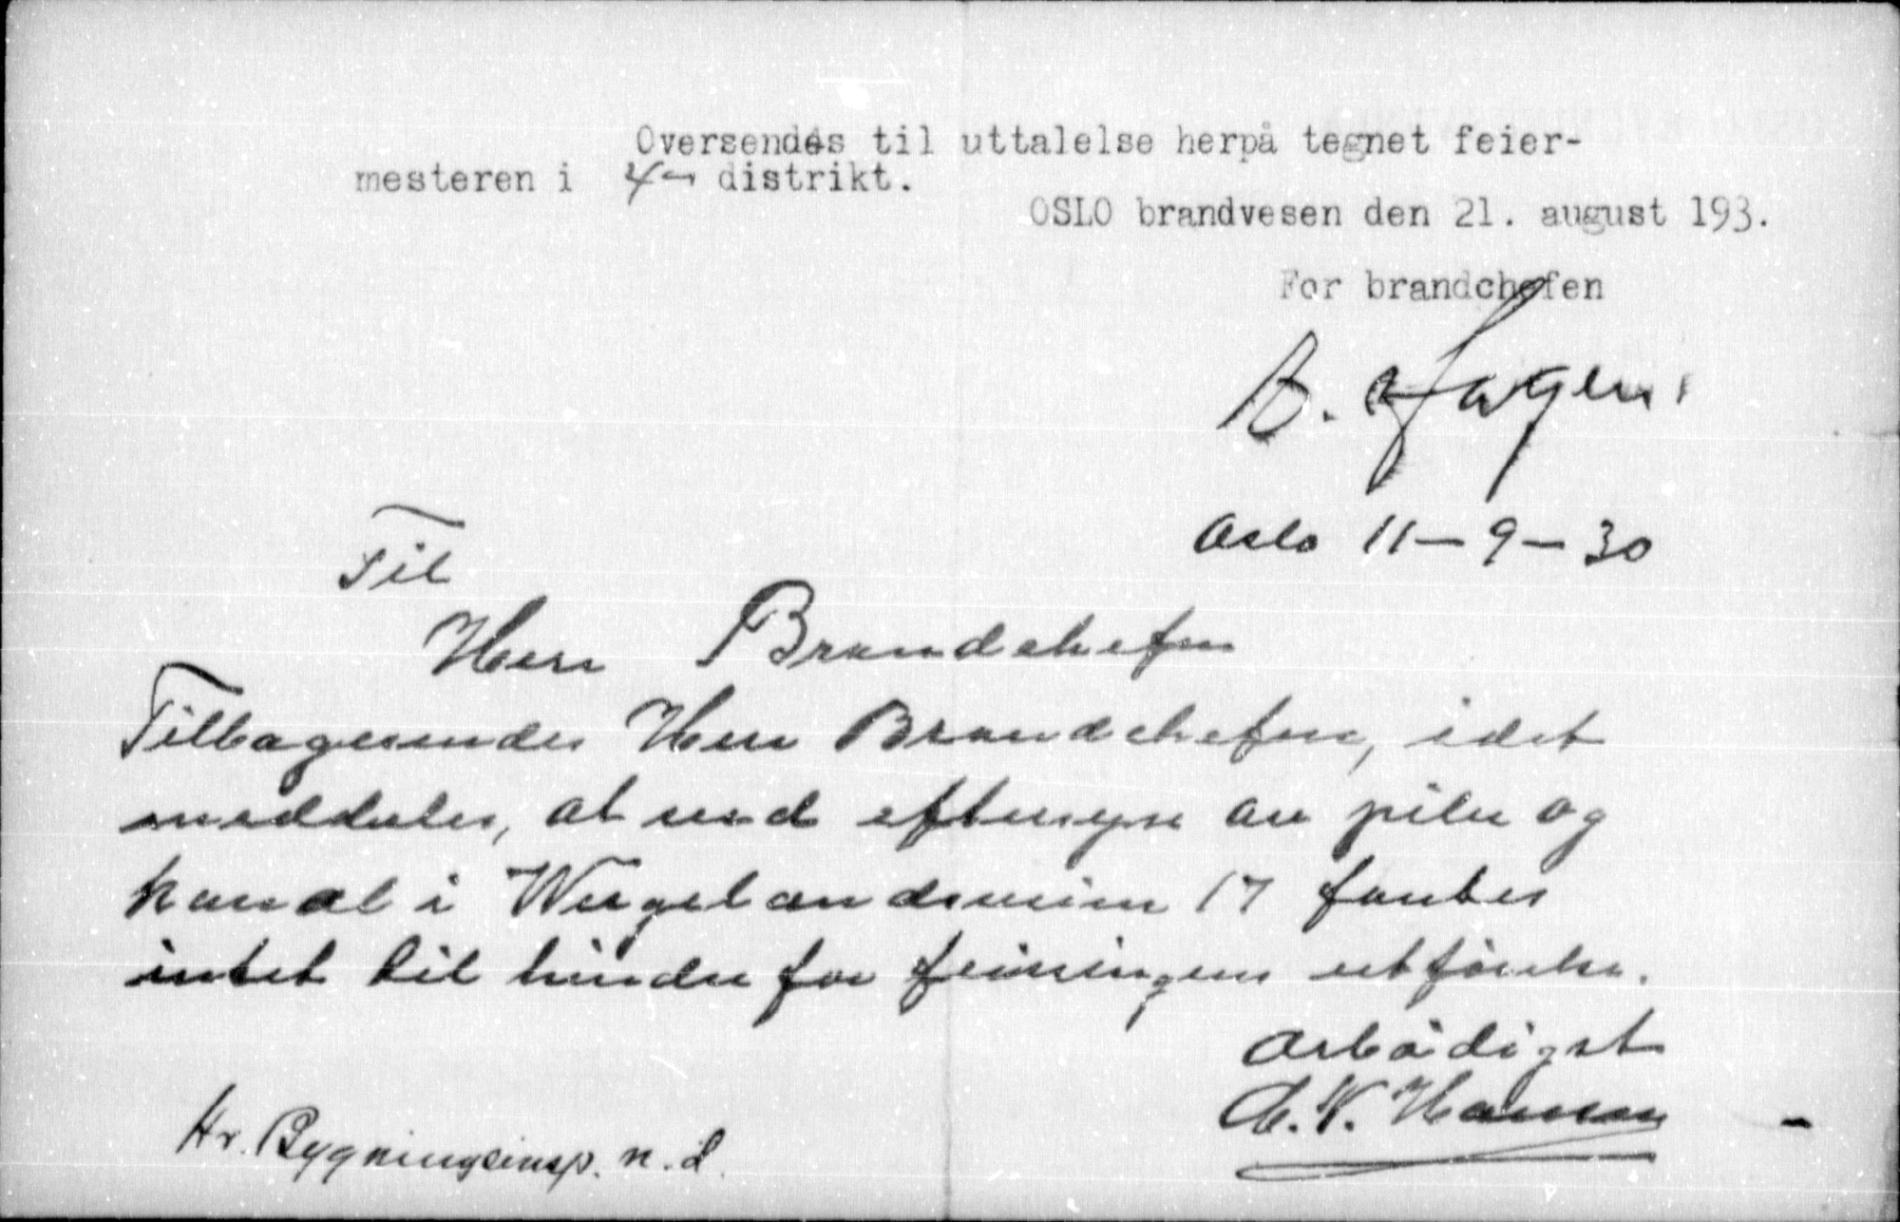 Oversendes til uttalelse herpå tegnet feier-
mesteren i 4de distrikt.
OSLO brandvesen den 21. august 193.
For brandchefen
B. Hagen
Oslo 11-9-30
Til
Herr Brandchefen
Tilbagesendes Herr Brandchefen, idet
meddeles, at ved eftersyn av piler og
kanal i Wergelandsveien 17 fantes
intet til hinder for feiningens utførelse.
Ærbødigst
C. K. Hansen
Hr. Bygningsinsp. n. d.